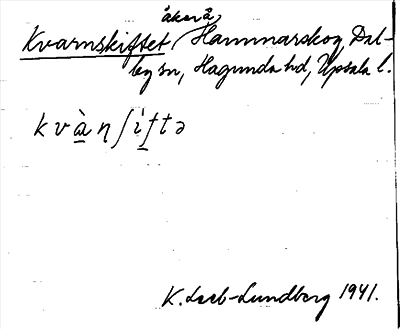 åker å
Kvarnskiftet, Hammarskog, Dal-
by sn, Hagunda hd, Upsala l.
k v à̱ n ʃ í̱ f t ə
K. Leeb-Lundberg 1941.